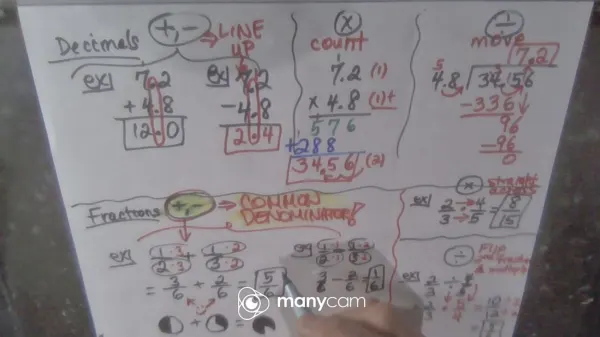 Decimals +,- → LINE UP
ex 7.2
+ 4.8
12.0
ex 7.2
- 4.8
2.4
×
count
7.2 (1)
× 4.8 (1)+
576
+288
34.56 (2)
÷
move
7.2
4.8 34.56
-336
96
-96
0
Fractions +,- → COMMON DENOMINATOR!
ex 1·3 + 1·2
2·3 3·2
= 3 + 2 = 5
6 6 6
+ =
3 - 2 = 1
6 6 6
×
straight
ex 2 · 4 = 8
3 5 15
÷
FLIP
& multiply
ex
manycam